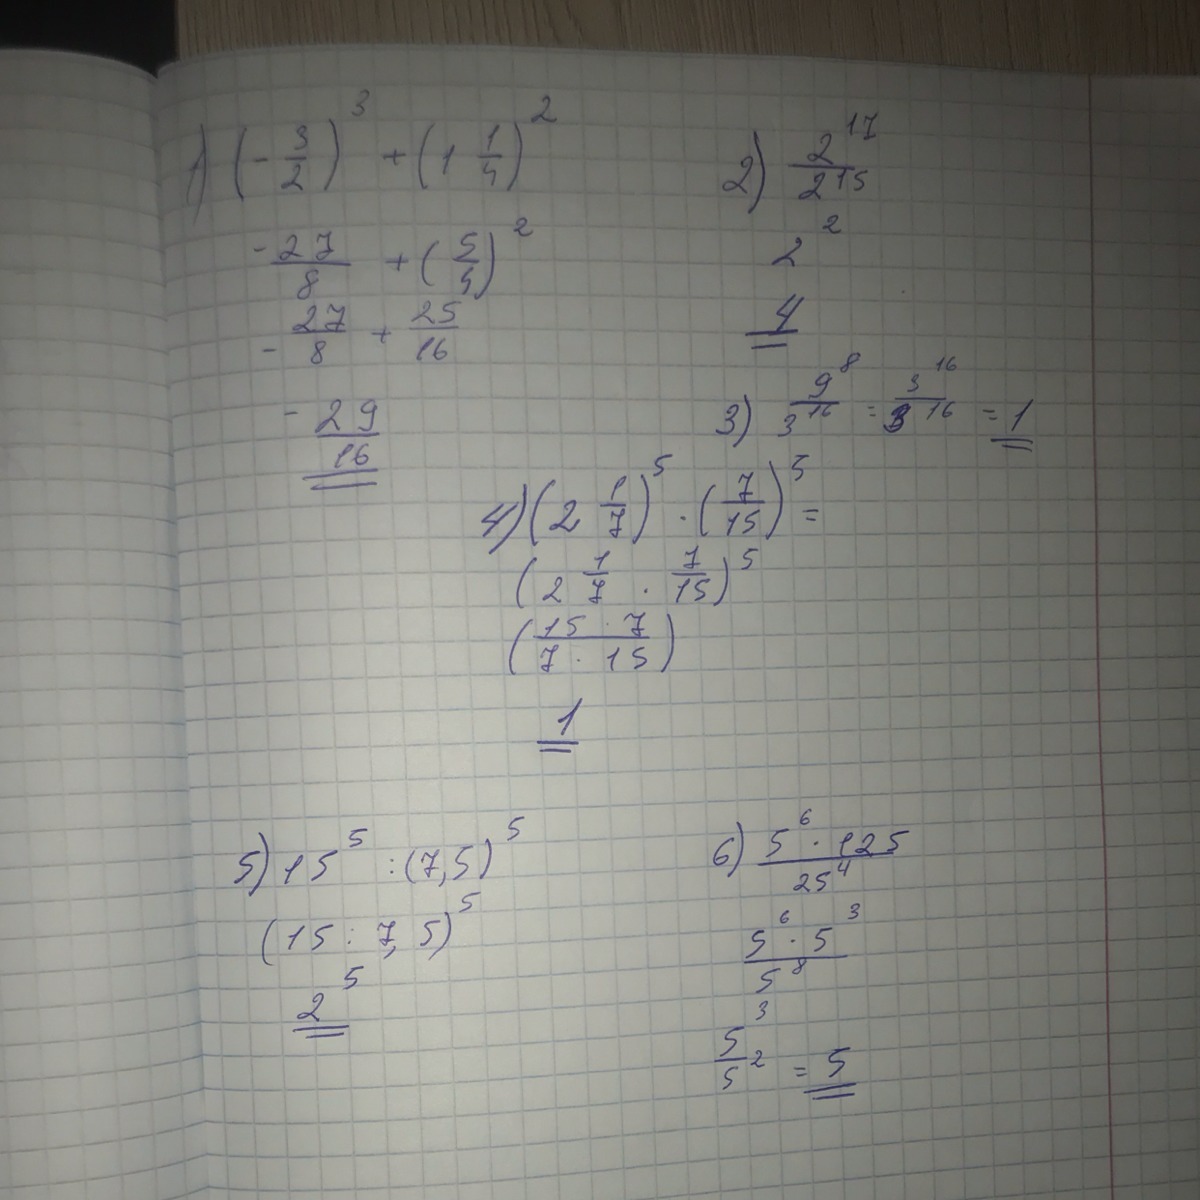 1) (-3/2)^3 + (1 1/4)^2
-27/8 + (5/4)^2
-27/8 + 25/16
-29/16
2) 2^17/2^15
2^2
4
3) 9^8/3^16 = 3^16/3^16 = 1
4) (2 1/7)^5 · (7/15)^5 =
(2 1/7 · 7/15)^5
(15 · 7/7 · 15)
1
5) 15^5 : (7,5)^5
(15 : 7,5)^5
2^5
6) 5^6 · 125/25^4
5^6 · 5^3/5^8
5^3/5^2 = 5